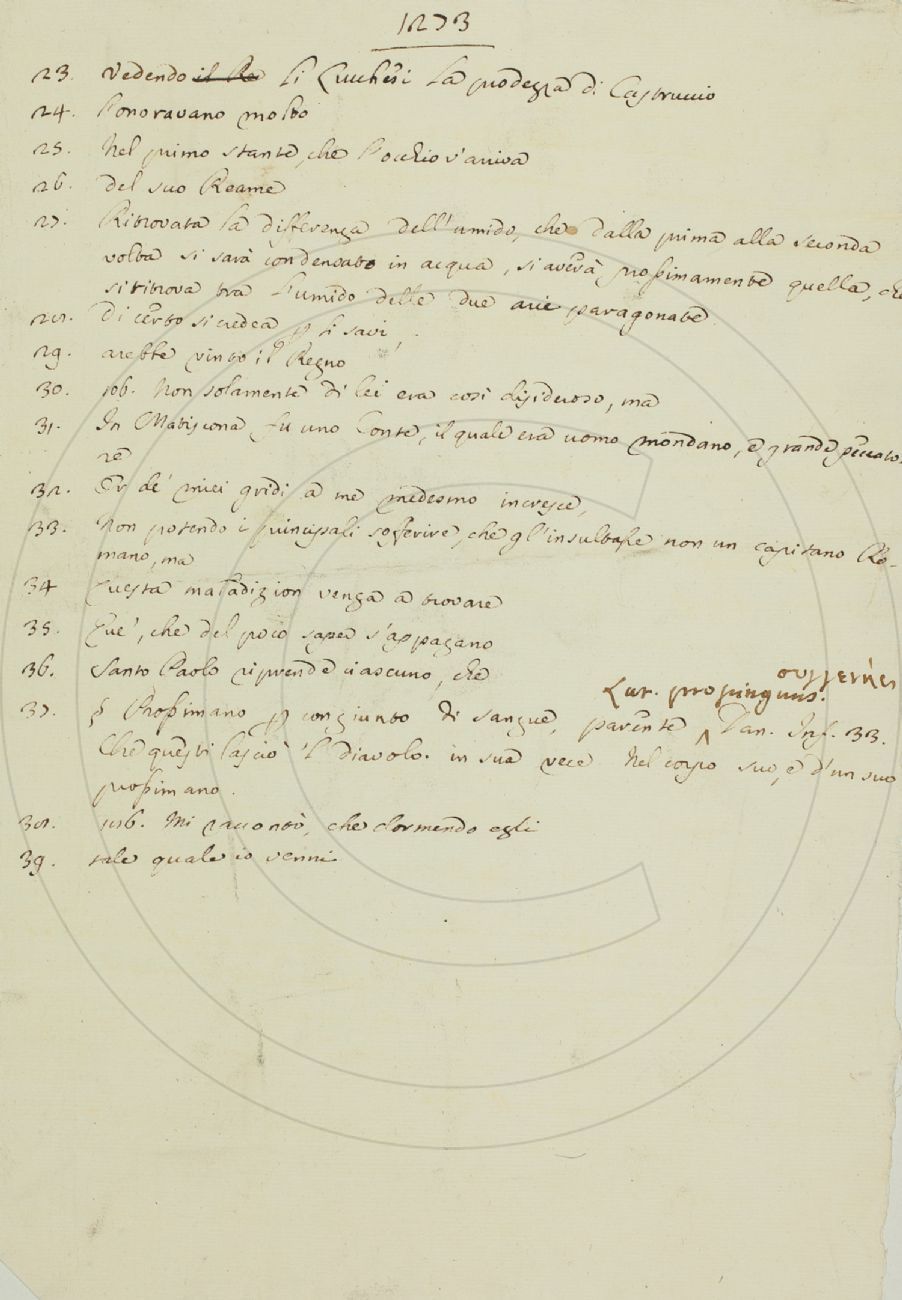 1273
23. Vedendo il Re li Lucchesi la prodezza di Castruccio
24. l'onoravano molto
25. Nel primo stante, che l'occhio v'arriva
26. del suo Reame
27. Ritrovata la differenza dell'umido, che dalla prima alla seconda
volta si sarà condensato in acqua, si averà prossimamente quella, che
si ritrova tra l'umido delle due arie paragonate.
28. Di certo si credea p li savi,
29. arebbe vinto il Regno
30. 106. Non solamente di lei era così disideroso, ma
31. In Matiscona fu uno Conte, il quale era uomo mondano, e grande peccato-
re
32. Er de' miei gridi a me medesmo incresce,
33. Non potendo i principali sofferire, che gl'insultasse non un capitano Ro-
mano, ma
34 questa maladizion venga a trovare
35. Que', che del poco saper s'appagano
36. Santo Paolo riprende ciascuno, che
συγγενής
Lat. propinquus.
37. § Prossimano p congiunto di sangue, parente Dan. Inf. 33.
Che questi lasciò 'l diavolo in sua vece Nel corpo suo, e d'un suo
prossimano.
38. 116. Mi raccontò, che dormendo egli
39. tale quale io venni